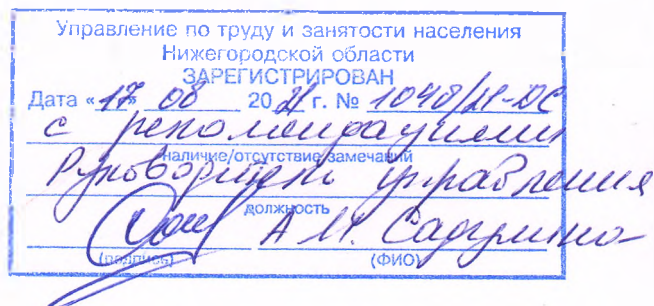 Управление по труду и занятости населения
Нижегородской области
ЗАРЕГИСТРИРОВАН
Дата «17» 08 2021 г. № 1048/21-ДС
с рекомендациями
наличие/отсутствие замечаний
Руководитель управления
должность
А.М.
(подпись) (ФИО)